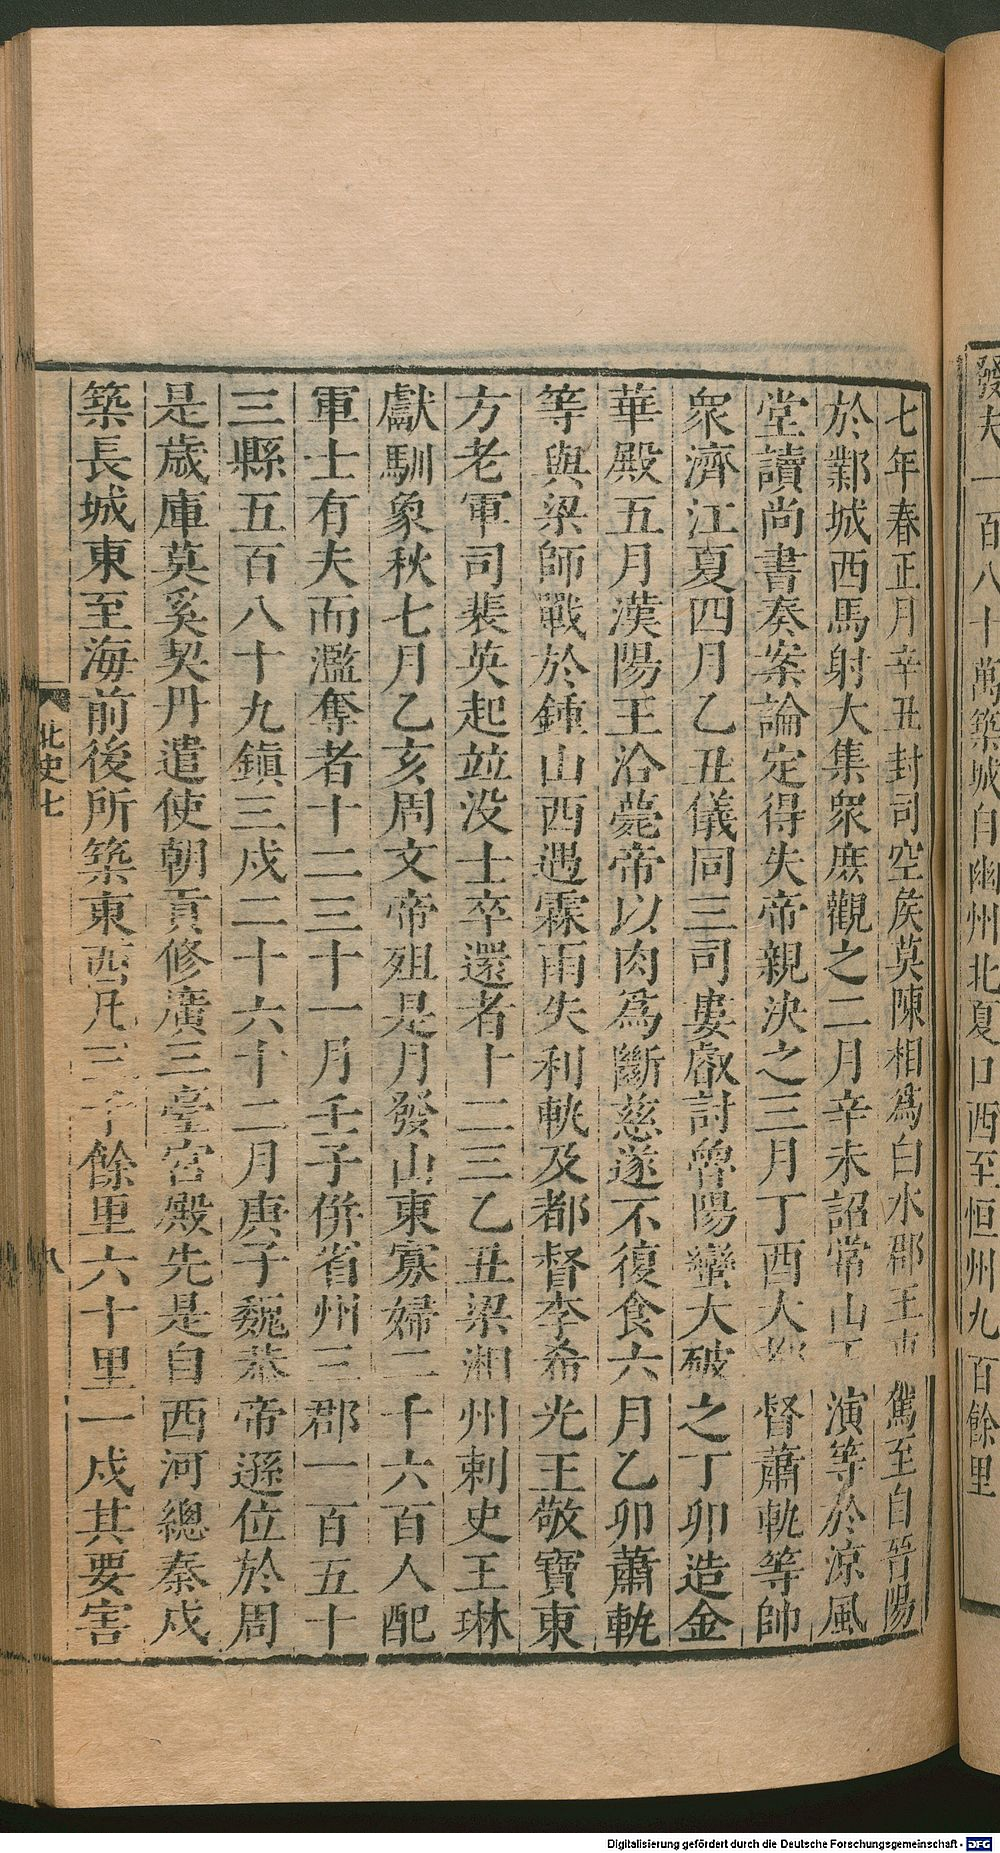 發夫一百八十萬築城自幽州北夏口西至恒州九百餘里
七年春正月辛丑封司空侯莫陳相爲白水郡王車駕至自晉陽
於鄴城西馬射大集衆庶觀之二月辛未詔常山王演等於涼風
堂讀尚書奏案論定得失帝親決之三月丁酉大都督蕭軌等帥
衆濟江夏四月乙丑儀同三司婁叡討魯陽蠻大破之丁卯造金
華殿五月漢陽王洽薨帝以肉爲斷慈遂不復食六月乙卯蕭軌
等與梁師戰於鍾山西遇霖雨失利軌及都督李希光王敬寶東
方老軍司裴英起並没士卒還者十二三乙丑梁湘州刺史王琳
獻馴象秋七月乙亥周文帝殂是月發山東寡婦二千六百人配
軍士有夫而濫奪者十二三十一月壬子併省州三郡一百五十
三縣五百八十九鎮三戍二十六十二月庚子魏恭帝遜位於周
是歲庫莫奚契丹遣使朝貢修廣三臺宮殿先是自西河總秦戍
築長城東至海前後所築東西凡三千餘里六十里一戍其要害
北史七
八
Digitalisierung gefördert durch die Deutsche Forschungsgemeinschaft - DFG